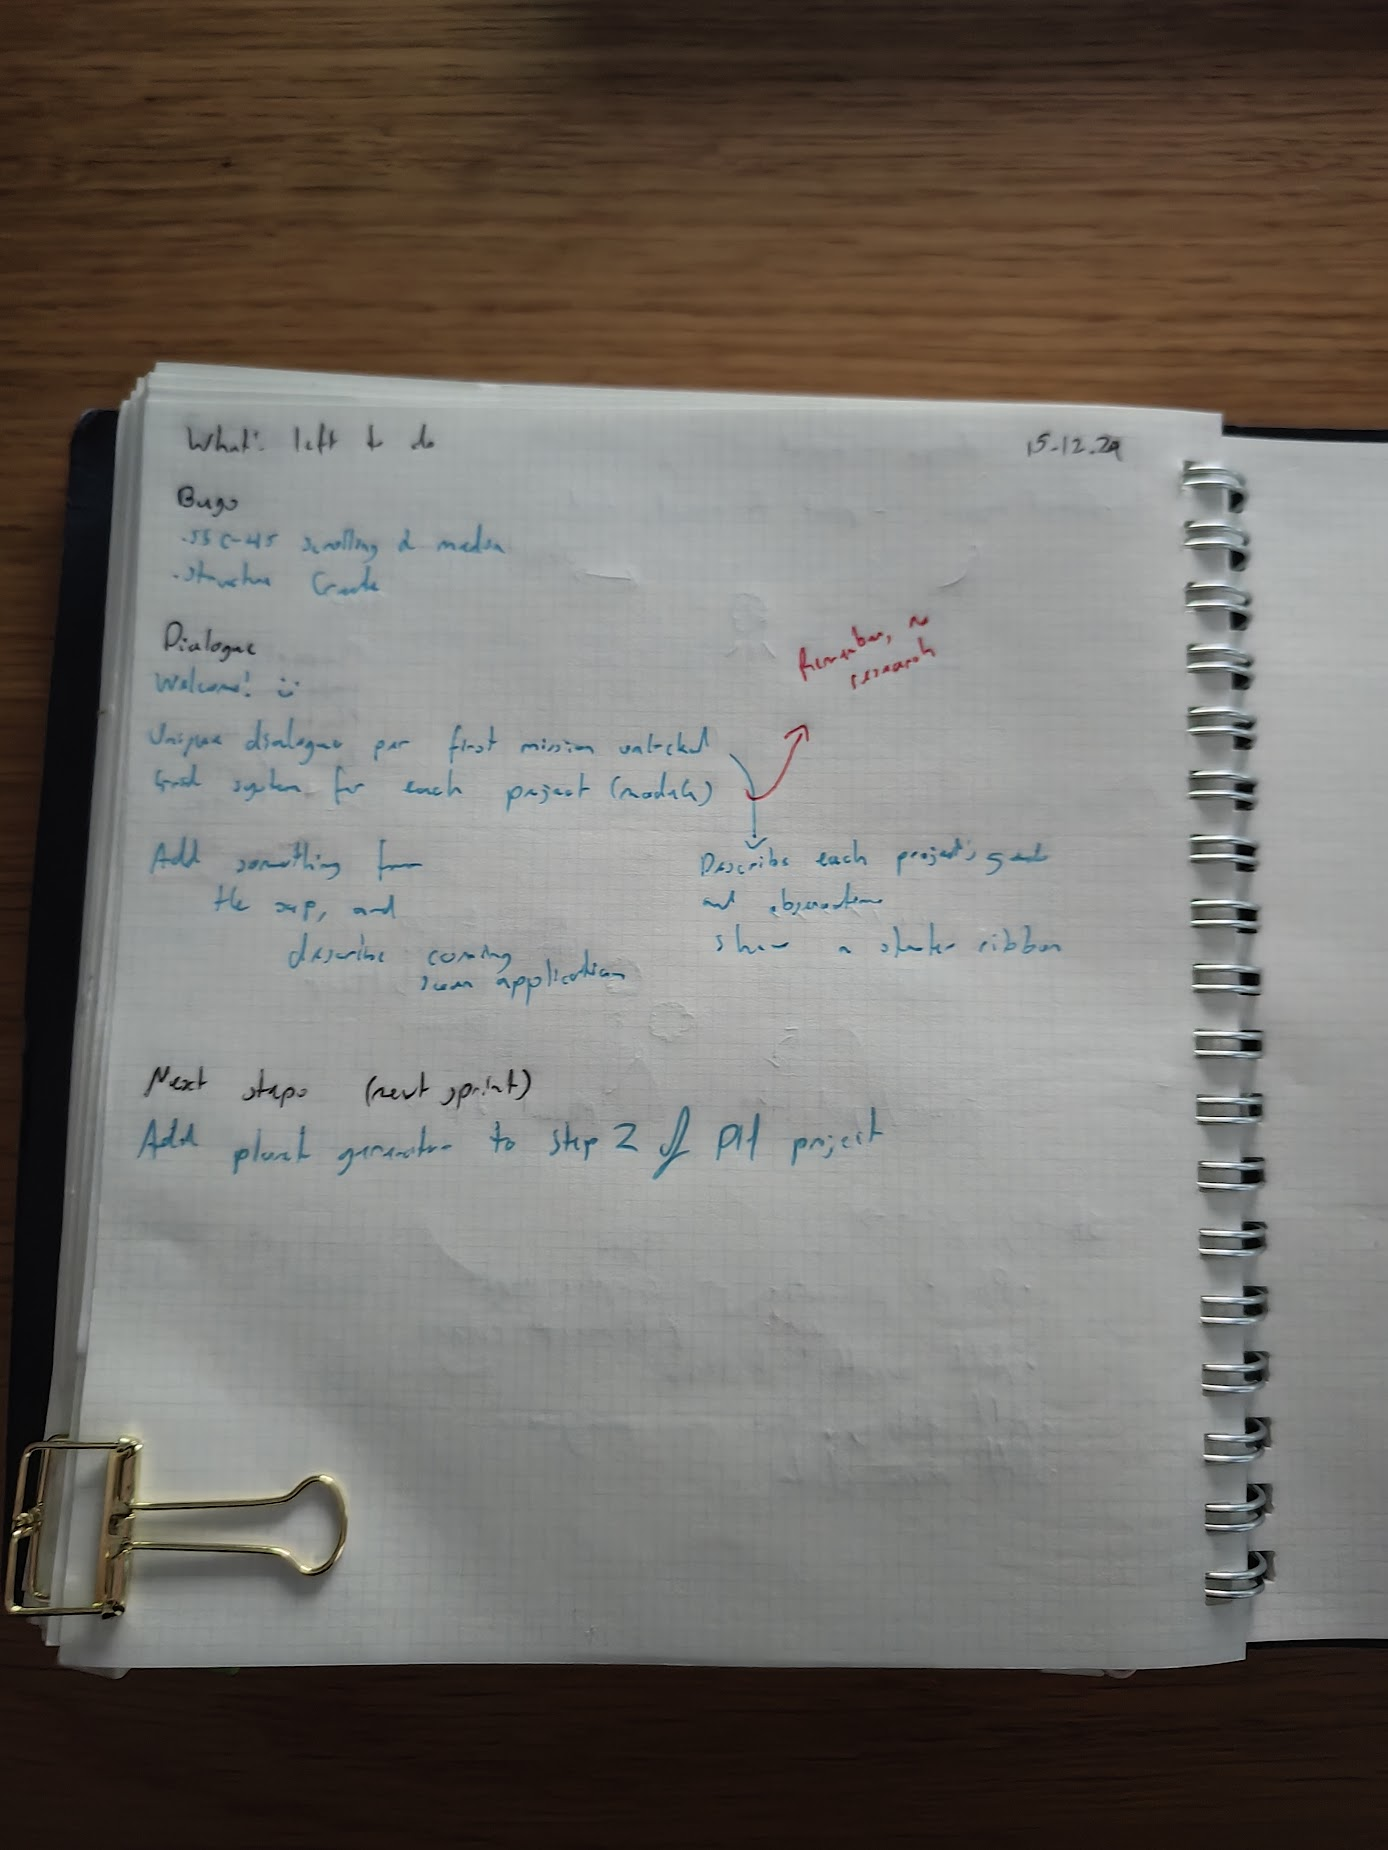 What's left to do
15.12.24
Bugs
scrolling & media
- Structure Create
Dialogue
Welcome! :)
Remember, no
research
Unique dialogue per first mission unlocked
system for each project (modals)
Add something from
the and
describe coming
soon application
Describe each project's goal
and observations
show a starter ribbon
Next steps (next sprint)
Add planet generator to step 2 of PH project